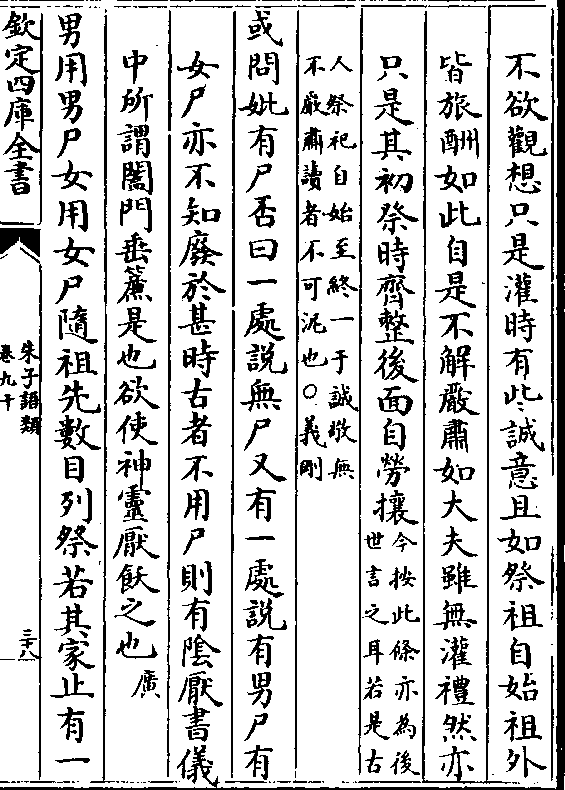 不欲觀想只是灌時有些誠意且如祭祖自始祖外
皆旅酬如此自是不解嚴肅如大夫雖無灌禮然亦
只是其初祭時齊整後面自勞攘今按此條亦為後
世言之耳若是古
人祭祀自始至終一于誠敬無
不嚴肅讀者不可泥也○義剛
或問妣有尸否曰一處說無尸又有一處說有男尸有
女尸亦不知廢於甚時古者不用尸則有陰厭書儀
中所謂闔門垂簾是也欲使神靈厭飫之也廣
男用男尸女用女尸隨祖先數目列祭若其家止有一
欽定四庫全書
朱子語類
卷九十
三十八